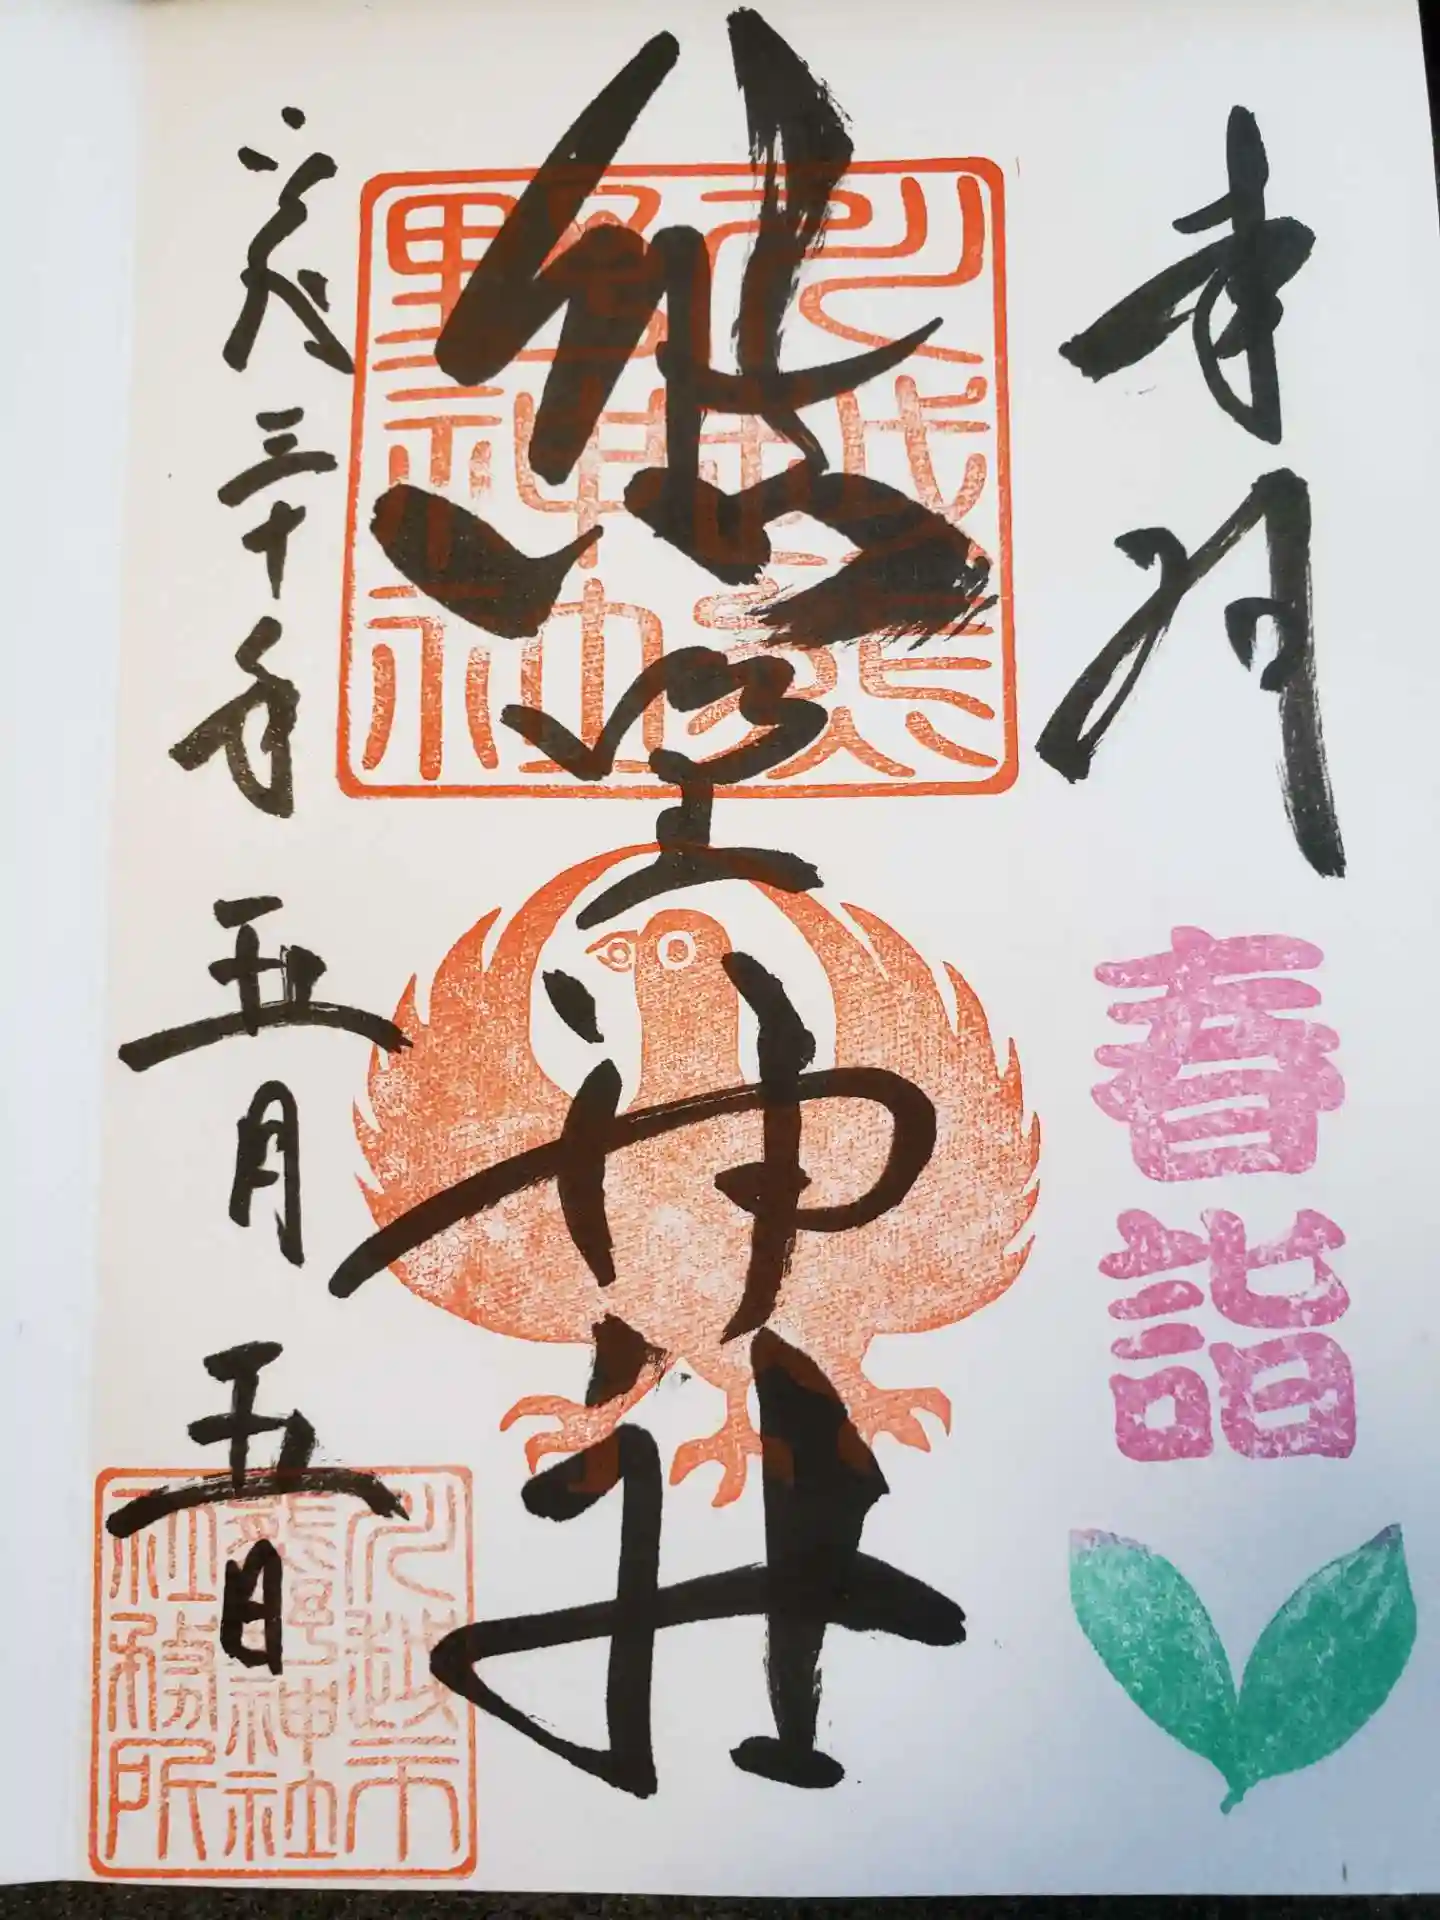 奉拝
春詣
川越熊
野神社
熊野神社
平成三十年五月五日
川越市
熊野神社
社務所